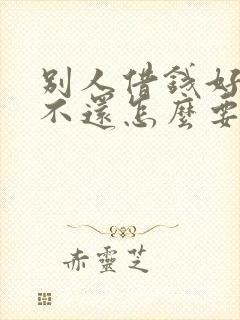 別人借錢好
不還怎麼要
赤靈芝